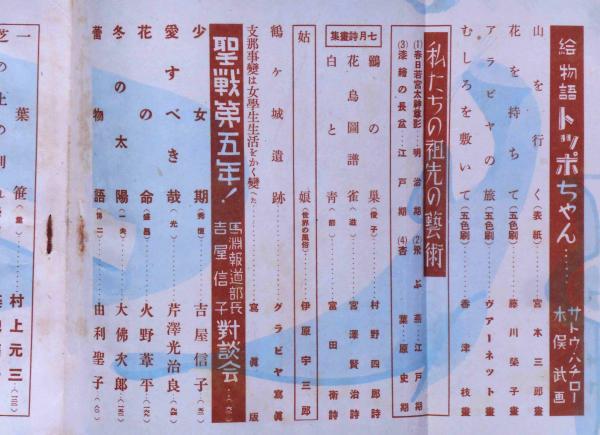 絵物語 トッポちゃん…… サトウ・ハチロー 木俣武画
山を行く(表紙)……宮木三郎畫
花を持ちて(五色刷)……藤川榮子畫
アラビヤの旅(五色刷)……ヴァーネット畫
むしろを敷いて(五色刷)……香津枝畫
私たちの祖先の藝術
(1)春日若宮太神尊影……明治期 (2)飛ぶ燕……江戸期
(3)漆繪の長盆……江戸期 (4)杏葉……原史期
七月詩畫集
鵜の巣(俊子)……村野四郎詩
花鳥圖譜 雀(進)……宮澤賢治詩
白と靑(節)……富田衛詩
姑娘(世界の風俗)……伊原宇三郎
鶴ヶ城遺跡……グラビヤ寫眞
支那事變は女學生生活をかく變へた……寫眞版
聖戰第五年! 馬淵報道部長 吉屋信子 對談會……
少女期(秀恒)……吉屋信子
愛すべき哉(光)……芹澤光治良
花の命(盛昌)……火野葦平
冬の太陽(一夫)……大佛次郎
薔物語(修二)……由利聖子
一葉笹(重)……村上元三
芝の上の